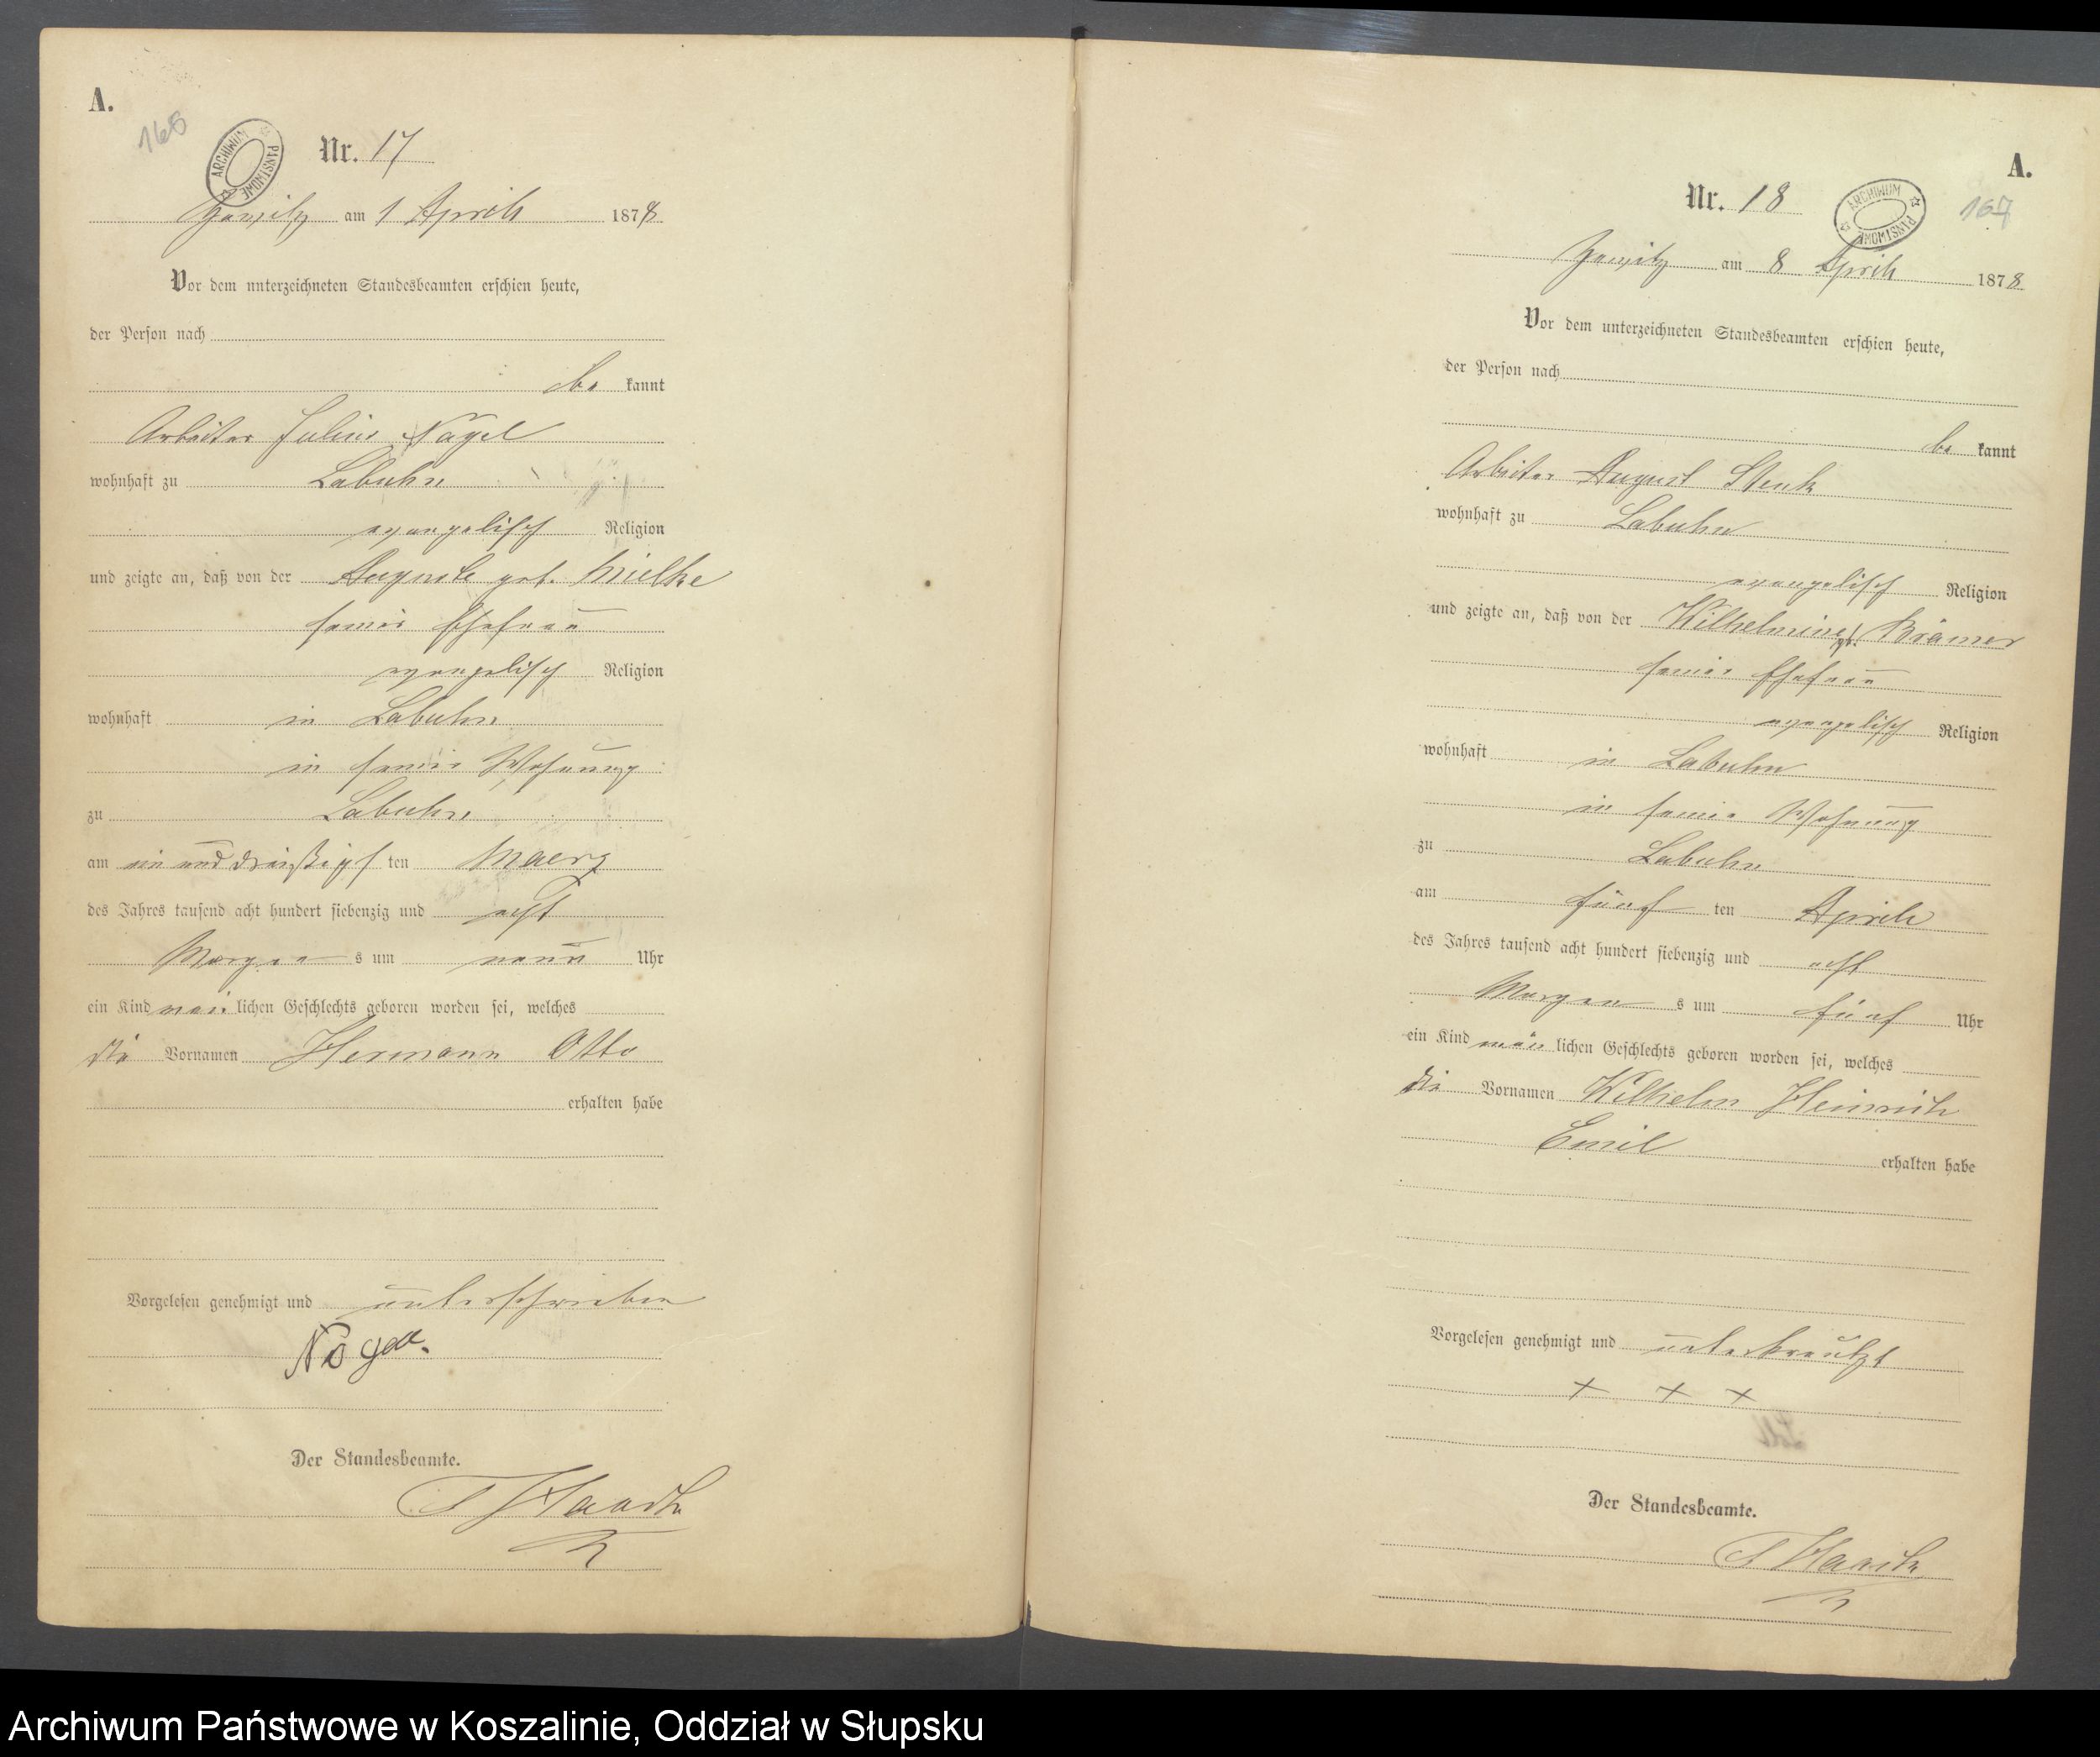 A.
168
ARCHIWUM PAŃSTWOWE
Nr. 17
am 1 April 1878
Vor dem unterzeichneten Standesbeamten erschien heute,
der Person nach
be kannt
Arbeiter Julius Nagel
wohnhaft zu Labuhn
evangelisch Religion
und zeigte an, daß von der Auguste geb. Mielke
seiner Ehefrau
evangelisch Religion
wohnhaft in Labuhn
in seiner Wohnung
zu Labuhn
am ein und dreißigs ten Maerz
des Jahres tausend acht hundert siebenzig und acht
Morgen s um neun Uhr
ein Kind män lichen Geschlechts geboren worden sei, welches
die Vornamen Hermann Otto
erhalten habe
Vorgelesen genehmigt und unterschrieben
Nagel.
Der Standesbeamte.
A.
Nr. 18
ARCHIWUM PAŃSTWOWE
167
am 8 April 1878
Vor dem unterzeichneten Standesbeamten erschien heute,
der Person nach
be kannt
Arbeiter August Stenk
wohnhaft zu Labuhn
evangelisch Religion
und zeigte an, daß von der Wilhelmine geb. Krämer
seiner Ehefrau
evangelisch Religion
wohnhaft in Labuhn
in seiner Wohnung
zu Labuhn
am fünf ten April
des Jahres tausend acht hundert siebenzig und acht
Morgen s um fünf Uhr
ein Kind män lichen Geschlechts geboren worden sei, welches
die Vornamen Wilhelm Heinrich
Emil erhalten habe
Vorgelesen genehmigt und unterkreuzt
+ + +
Der Standesbeamte.
Archiwum Państwowe w Koszalinie, Oddział w Słupsku